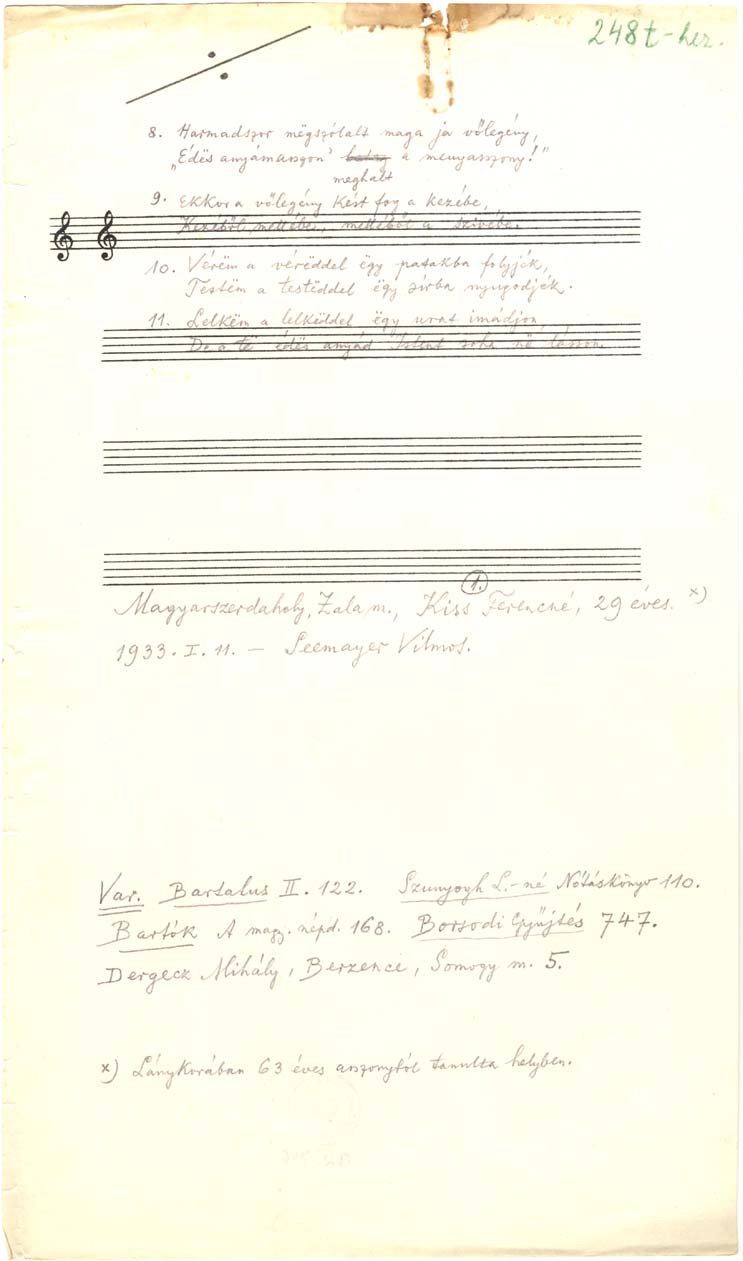 248t-her.
8. Harmadszor mëgszólalt maga ja vőlegény,
„Édës anyámasszon' beteg a menyasszony!"
meghalt
9. Ekkor a vőlegény kést fog a kezébe,
Kezéből mellébe, melléből a szivébe.
10. Vérëm a vérëddel ëgy patakba folyjék,
Testëm a testëddel ëgy sírba nyugodjék.
11. Lelkëm a lelkëddel ëgy urat imádjon,
De a të édës anyád Istent soha në lásson.
1.
Magyarszerdahely, Zala m., Kiss Ferencné, 29 éves. x)
1933. I. 11. — Seemayer Vilmos.
Var. Bartalus II. 122. Szunyogh L.-né Nótáskönyv 110.
Bartók A magy. népd. 168. Borsodi Gyűjtés 747.
Dergecz Mihály, Berzence, Somogy m. 5.
x) Lánykorában 63 éves asszonytól tanulta helyben.